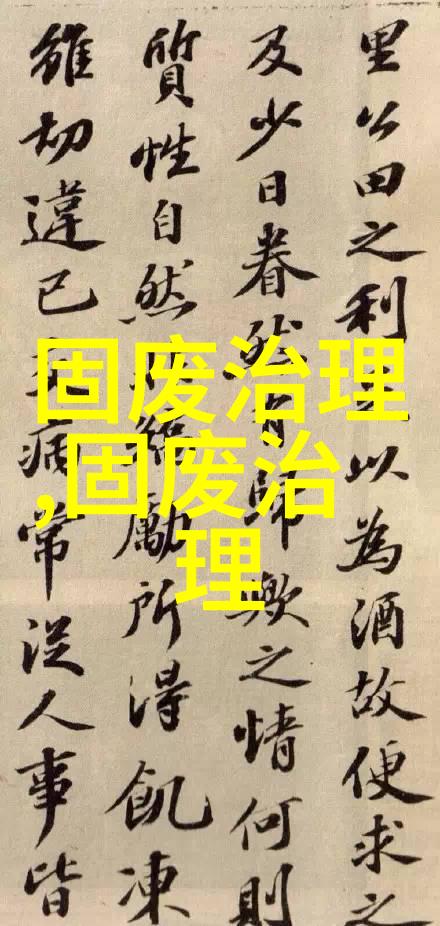 里公田之利以為酒故便求之
及少日眷然有歸歟之情何則
質性自然勵所得飢凍
雖切違己病常從人事皆
固废治理
,固废治
理